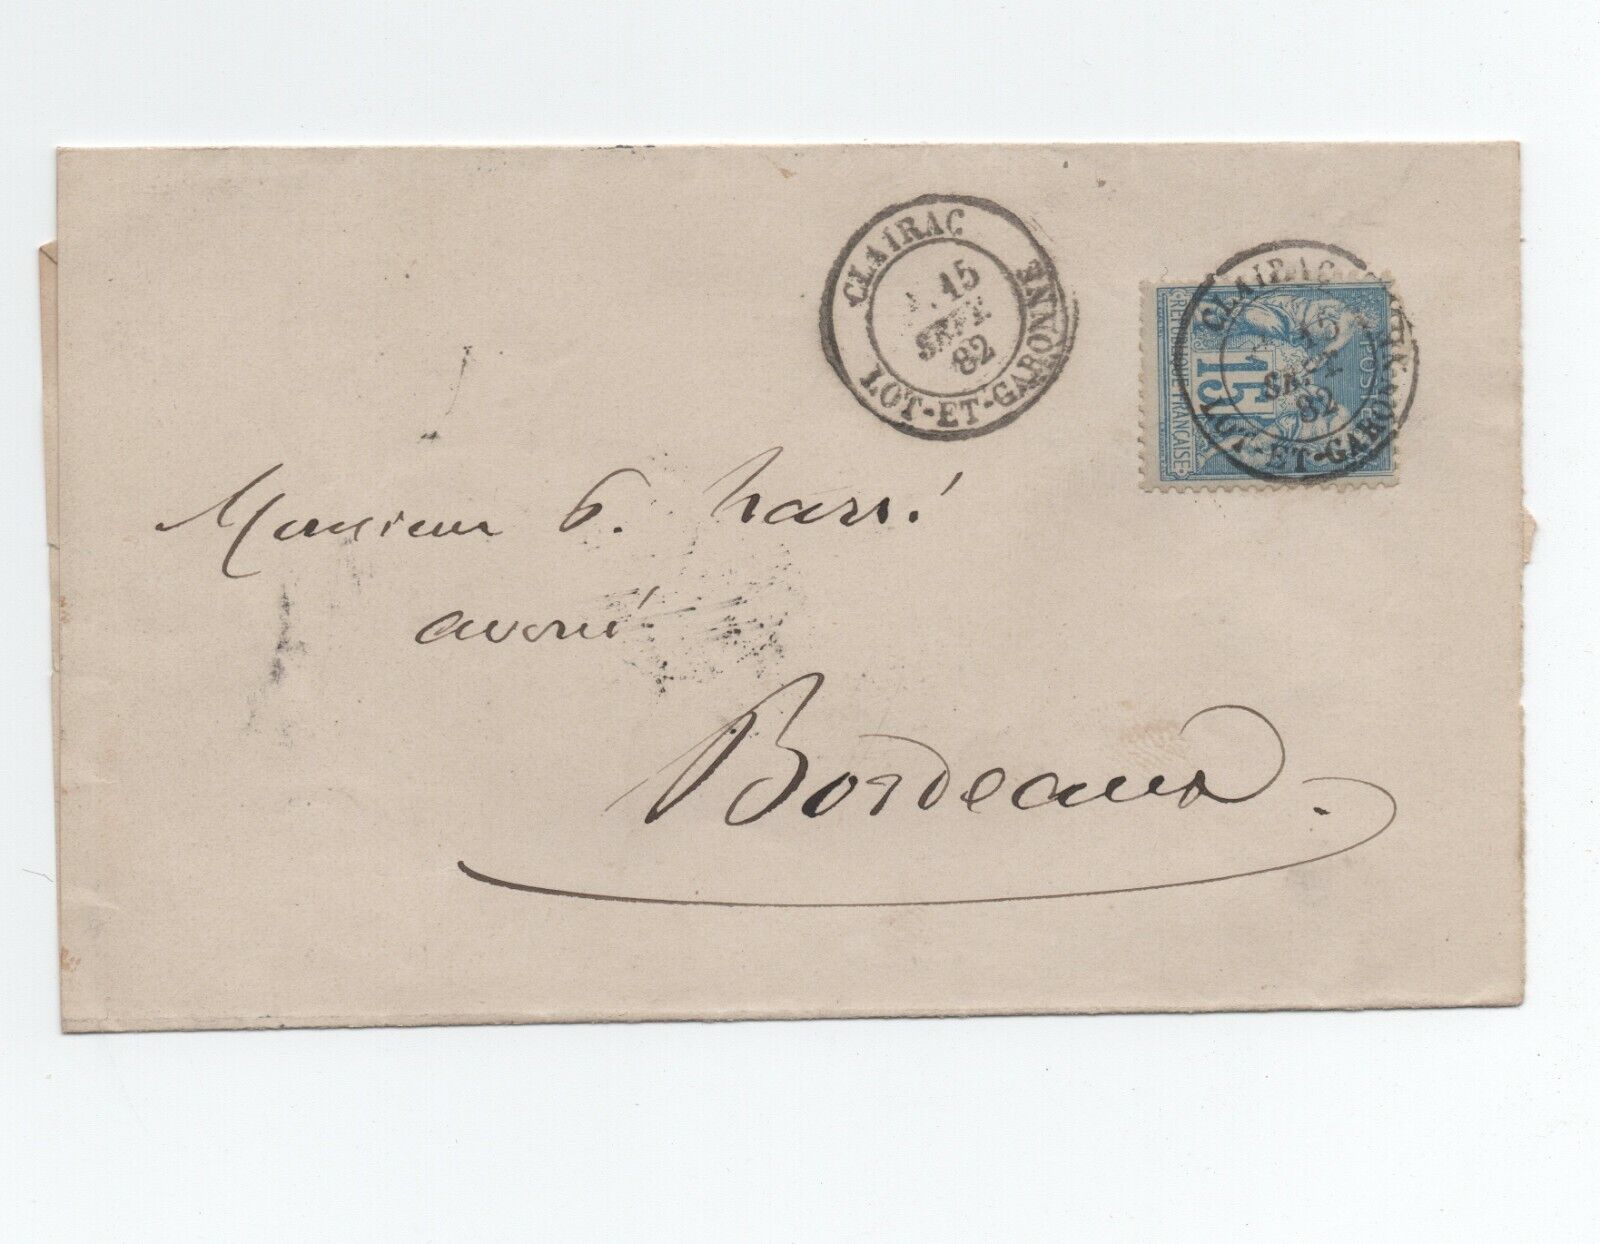 CLAIRAC
15
SEPT
82
LOT-ET-GARONNE
CLAIRAC
15
SEPT
82
LOT-ET-GARONNE
15
POSTES
REPUBLIQUE FRANCAISE
Monsieur
avoué
Bordeaux.